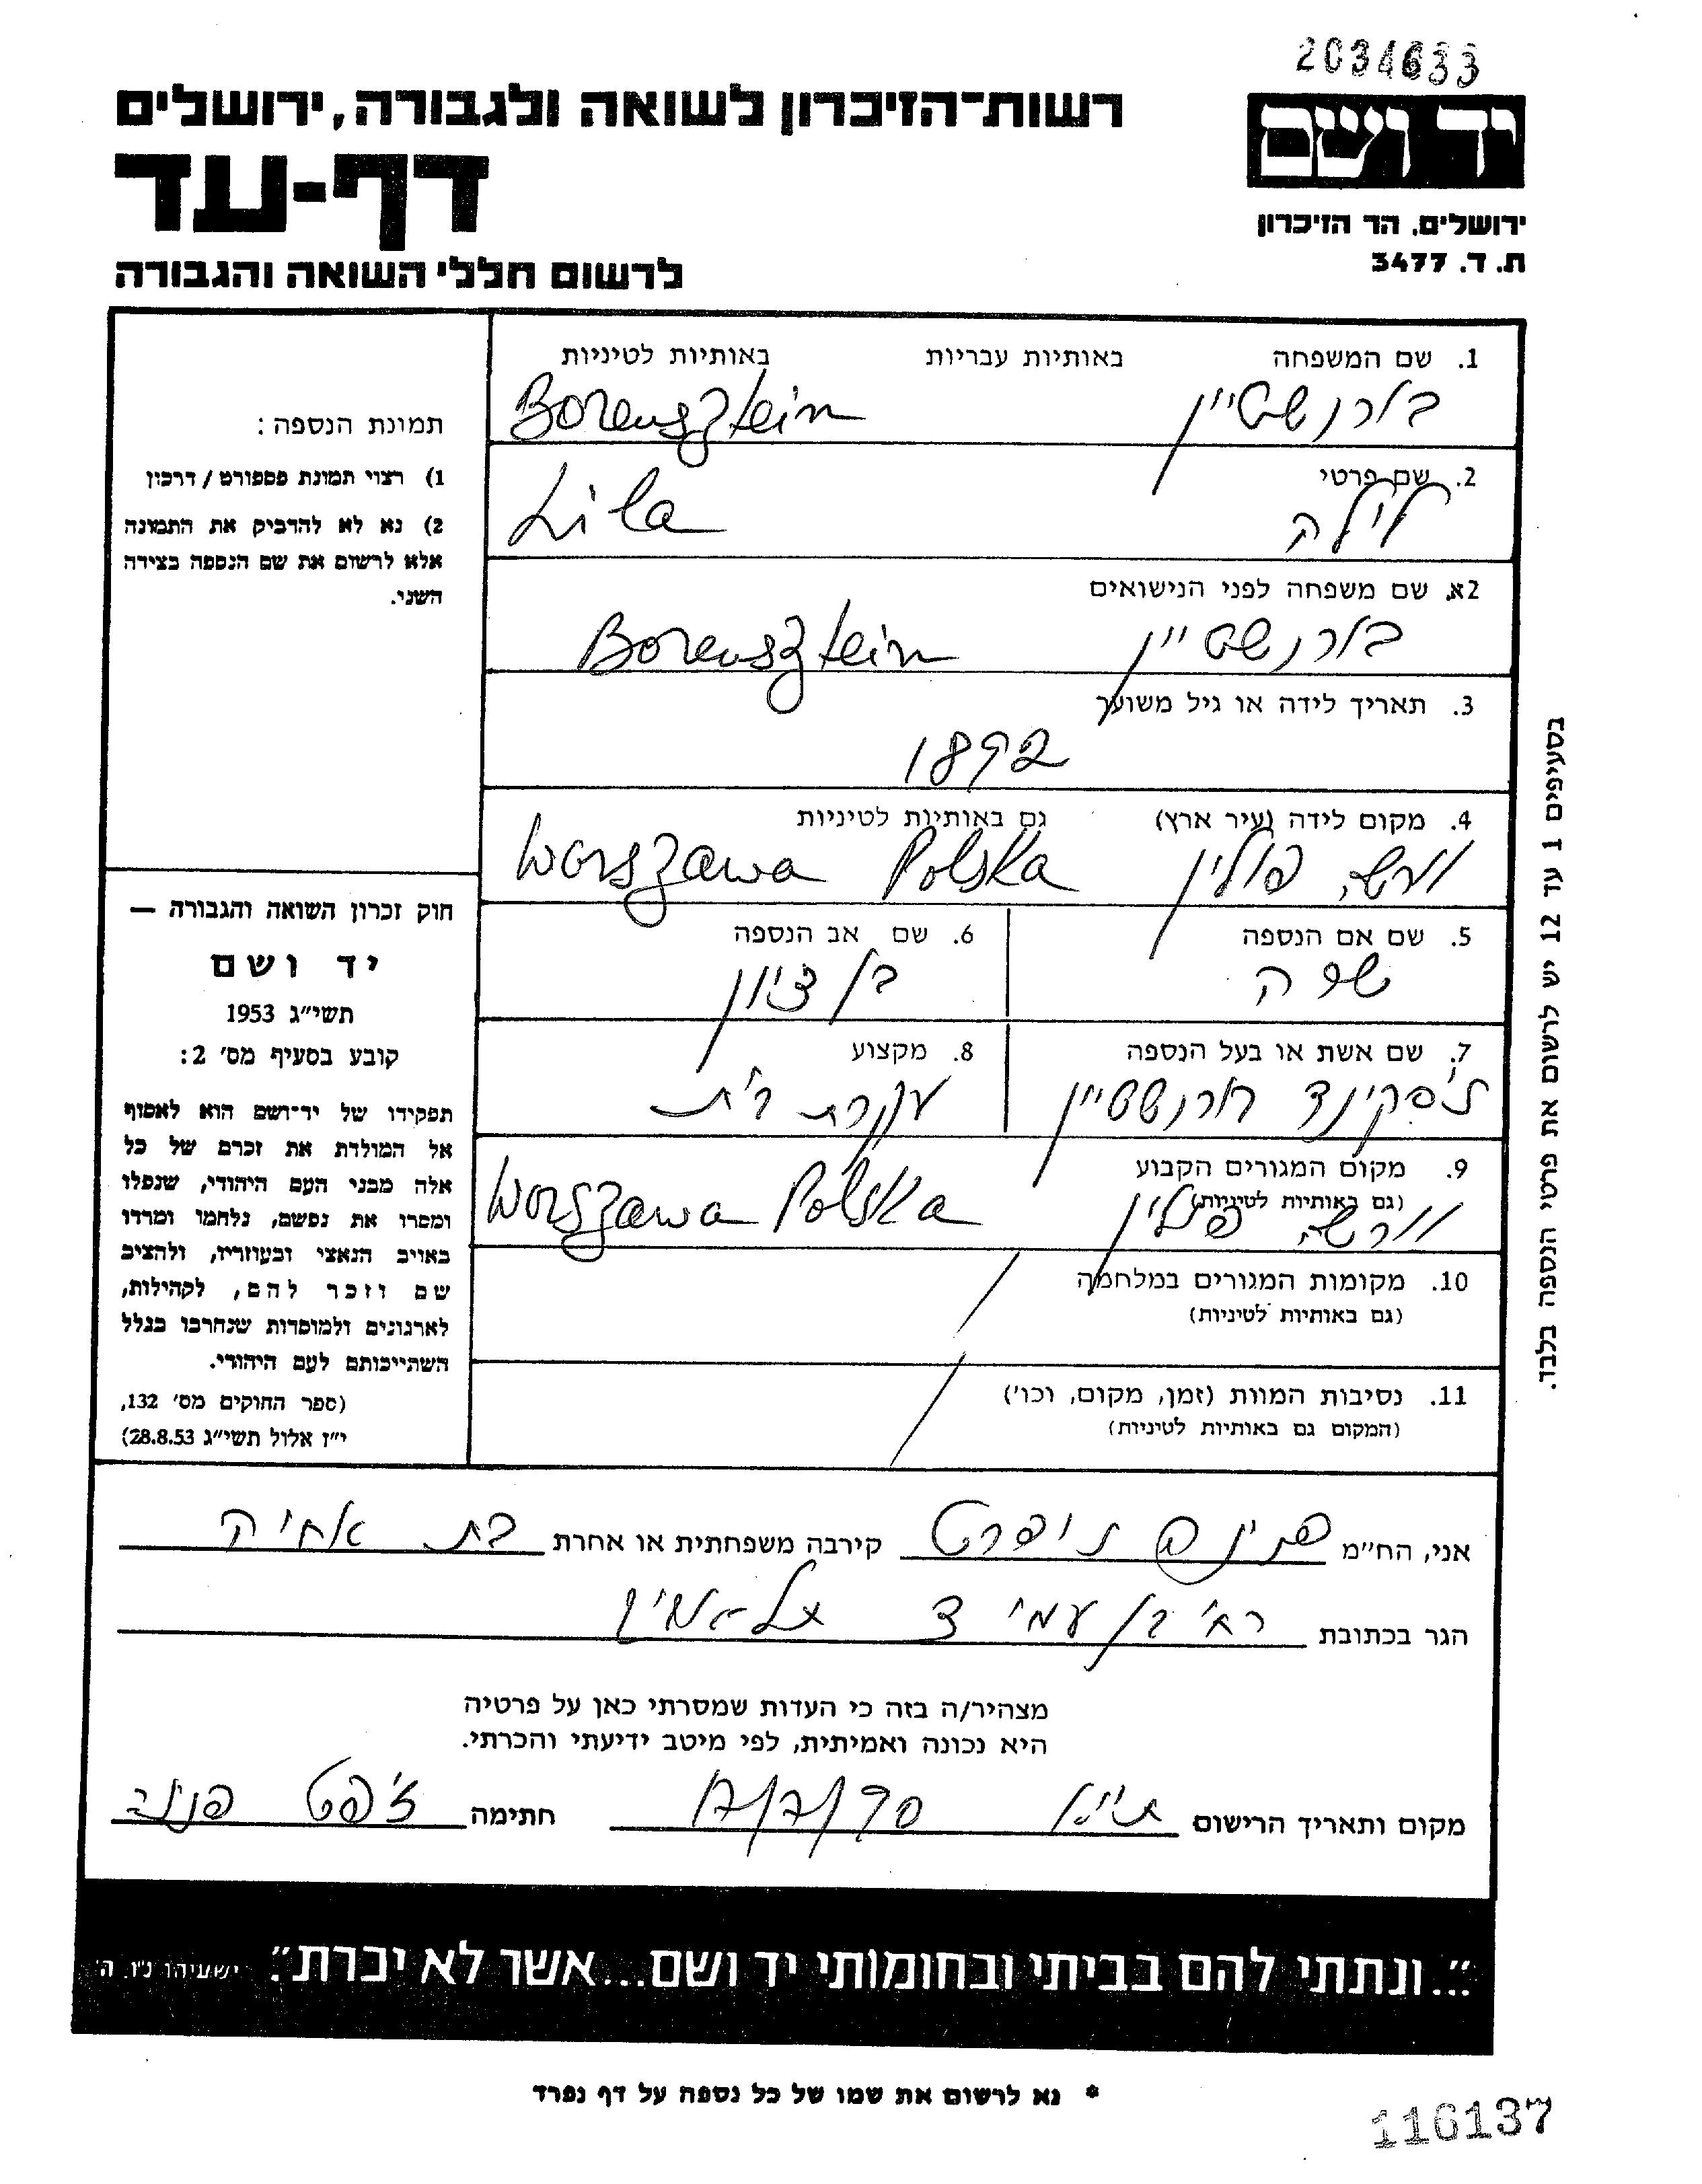 2034633
יד ושם
רשות־הזיכרון לשואה ולגבורה, ירושלים
דף-עד
ירושלים, הר הזיכרון
ת. ד. 3477
לרשום חללי השואה והגבורה
1. שם המשפחה באותיות עבריות באותיות לטיניות
בורנשטיין Borensztein
2. שם פרטי
לילה Lila
2א. שם משפחה לפני הנישואים
בורנשטיין Borensztein
3. תאריך לידה או גיל משוער
1892
4. מקום לידה (עיר ארץ) גם באותיות לטיניות
ורשה, פולין Worszawa Polska
5. שם אם הנספה 6. שם אב הנספה
שרה בן ציון
7. שם אשת או בעל הנספה 8. מקצוע
זיסקינד בורנשטיין עקרת בית
9. מקום המגורים הקבוע
(גם באותיות לטיניות)
וורשה, פולין Worszawa Polska
10. מקומות המגורים במלחמה
(גם באותיות לטיניות)
11. נסיבות המוות (זמן, מקום, וכו')
(המקום גם באותיות לטיניות)
תמונת הנספה:
1) רצוי תמונת פספורט / דרכון
2) נא לא להדביק את התמונה
אלא לרשום את שם הנספה בצידה
השני.
חוק זכרון השואה והגבורה —
יד ושם
תשי״ג 1953
קובע בסעיף מס' 2:
תפקידו של יד־ושם הוא לאסוף
אל המולדת את זכרם של כל
אלה מבני העם היהודי, שנפלו
ומסרו את נפשם, נלחמו ומרדו
באויב הנאצי ובעוזריו, ולהציב
שם וזכר להם, לקהילות,
לארגונים ולמוסדות שנחרבו בגלל
השתייכותם לעם היהודי.
(ספר החוקים מס' 132,
י״ז אלול תשי״ג 28.8.53)
בסעיפים 1 עד 12 יש לרשום את פרטי הנספה בלבד.
אני, הח״מ קירבה משפחתית או אחרת בת אחיה
הגר בכתובת רח' בן עמי 3
מצהיר/ה בזה כי העדות שמסרתי כאן על פרטיה
היא נכונה ואמיתית, לפי מיטב ידיעתי והכרתי.
מקום ותאריך הרישום חתימה
״...ונתתי להם בביתי ובחומותי יד ושם...אשר לא יכרת״. ישעיהו נ״ו, ה׳
* נא לרשום את שמו של כל נספה על דף נפרד
116137